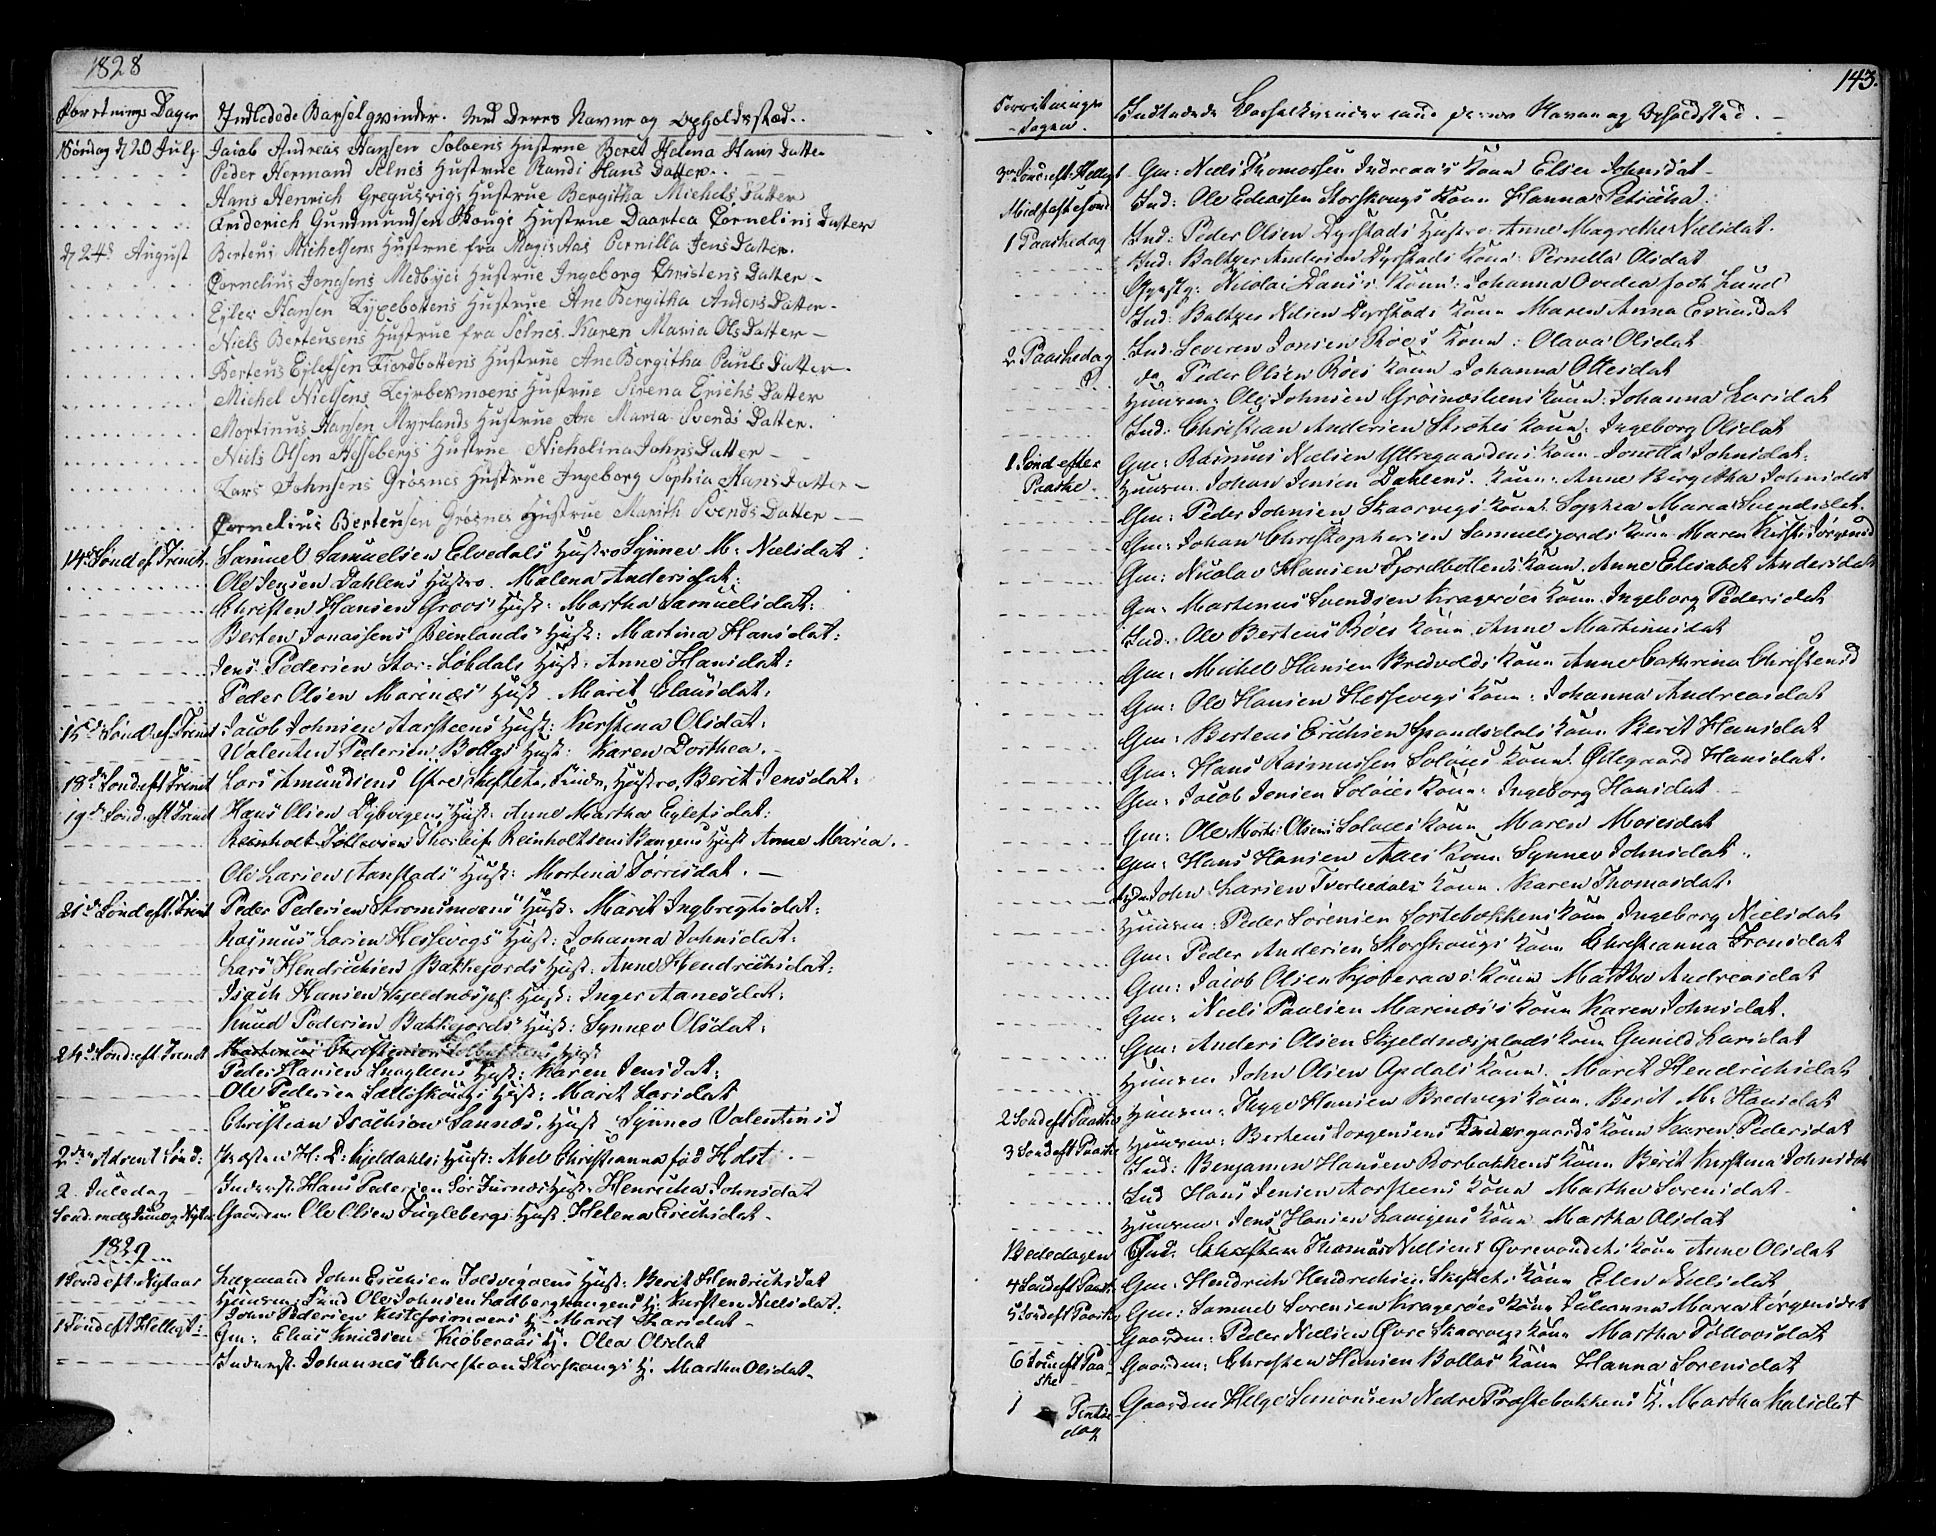 1828
Forretnings Dagen Indledede Barselqvinder. Med Deres Navne og Opholdsstæd.
Søndag d 20 July Jacob Andreas Hansen Soloens Hustrue Beret Helena Hans Datter
Peder Hermand Selnes Hustrue Randi Hans Datter.
Hans Henrich Gregusvigs Hustrue Bergitha Michels Datter
Friderich Gundmundsen Skougs Hustrue Daartea Cornelius Datter
d 24de August Berteus Michelsens Hustrue fra Magis Aas Pernilla Jens Datter.
Cornelius Jonasens Medbyes Hustrue Ingeborg Christens Datter
Eyler Hansen Lyxebottens Hustrue Ane Bergitha Anders Datter
Niels Bertensens Hustrue fra Selnes Karen Maria Ols Datter
Berteus Eylefsen Fiordbottens Hustrue Ane Bergitha Pauls Datter
Michel Nielsens Lejrbekmoens Hustrue Sirena Erichs Datter
Mortinus Hansen Myrlands Hustrue Ane Maria Svends Datter.
Niels Olsen Hessebergs Hustrue Nicholina Johns Datter
Lars Johnsens Grøsnes Hustrue Ingeborg Sophia Hans Datter
Cornelius Bertensen Grøsnes Hustrue Marith Svends Datter
14de Sønd ef. Trenit. Samuel Samuelsen Elvedals Hustro Synnev M: Nielsdat:
Ole Jensen Dahlens Hustro. Malena Andersdat:
Christen Hansen Groos Hust: Martha Samuelsdat:
Berten Jonassens Beinlands Hust: Martina Hansdat:
Jens Pedersen Stor-Løkdals Hust: Anne Hansdat:
Peder Olsen Marinæs Hust. Marit Clausdat:
15de Sønd: ef. Trenit Jacob Johnsen Aarsteens Hust: Kirstena Olsdat:
Valenten Pedersen Bollas Hust: Karen Dorthea.
18de Sønd eft Trenit Lars Amundsens Øvre Skiftete, Hustro, Berit Jensdat:
19de Sønd. eft Trenit Hans Olsen Dybvigens Hust: Anne Martha Eylefsdat:
Reinholt Tollevsen Thorleif Reinholtsens Bangens Hust Anne Maria.
Ole Larsen Aanstads Hust: Mortina Torrisdat.
21de Sønd eft. Trenit Peder Pedersen Stromsmoens Hust: Marit Ingbregtsdat:
Rasmus Larsen Hessevigs Hust: Johanna Johnsdat:
Lars Hendrichsen Bakkejords Hust: Anne Hendrichsdat:
Isach Hansen Kjeldnæspl. Hust: Inger Aanesdat:
Knud Pedersen Bakkejords Hust: Synnev Olsdat:
24de Sønd: eft Trenit Martenus Christensen Hust
Peder Hansen Hust: Karen Jensdat:
Ole Pedersen Salloskougs Hust: Marit Larsdat
Christian Isachsen Sannæs. Hust Synnev Valentinsd
2den Advent Sønd: Præsten H: D: Kjeldahls: Hust: Abel Christianna fød Holst.
2. Juledag Inderst: Hans Pedersen Sør Furnæs Hust: Henricha Johnsdat
Sønd. mell. Juul og Nytaar Gaardm: Ole Olsen Fuglebergs Hust. Helena Erichsdat
1829
1 Sønd eft Nytaar Lægmand John Erichsen Toldvigoens Hust: Berit Hendrichsdat
Huusm: Sund Ole Johnsen Ladberghaugens H. Kirsten Nielsdat.
John Pedersen Kistefosmoens H. Marit Skarsdat
1 Sønd eft Helligt: Gm: Elias Knudsen Kioberaas H. Olea Olsdat
Inderst. Johannes Christian Storskougs H. Martha Olsdat
143.
Forretnings dagen. Indledede Barselkvinder med deres Navne og Opholdsted.
3die Sønd: eft: Helligt Gm: Niels Thomessen Indreaas's Kone Elsea Johnsdat
Midfastesønd Ind: Ole Edeassen Storskougs Kone Hanna Petricha
1 Paaskedag Ind: Peder Olsen Dyrstads Hustro: Anne Magrethe Nielsdat.
Ind: Baltzer Andersen Dyrstads Kone: Pernella Olsdat
Gjæstg: Nicolai Daniis Kone: Johanna Ovedea født Lund
Ind: Baltzer Nilsen Dyrstads Kone Maren Anna Esaiasdat
2 Paaskedag Ind. Severen Jonsen Røes Kone: Olava Olsdat
do Peder Olsen Røes Kone Johanna Ottesdat
Huusm: Ole Johnsen Grøinæsliens Kone: Johanna Larsdat
Ind: Christian Andersen Strøkes Kone: Ingeborg Olsdat
1 Sønd efter Paaske Gm: Rasmus Nielsen Yttregaardens Kone Jonetta Johnsdat:
Huusm: Johan Jensen Dahlens. Kone: Anne Bergitha Johnsdat
Gm: Peder Johnsen Skaarvigs Kone: Sophia Maria Svendsdat.
Gm: Johan Christophersen Samueljords Kone Maren Kirsti Jørgensd
Gm: Nicolai Hansen Fjordbottens Kone. Anne Elisabet Andersdat
Gm: Martenus Svendsen Kragerøes Kone. Ingeborg Pedersdat
Ind: Ole Bertens Røes Kone. Anne Martinusdat
Gm: Michel Hansen Bredvolds Kone Anne Cathrina Christensd
Gm: Ole Hansen Hessevigs Kone: Johanna Andreasdat
Gm: Bertens Erichsen Spandsdals Kone Berit Hansdat
Gm: Hans Rasmussen Soløies Kone: Ødegaard Hansdat.
Gm: Jacob Jensen Soløies Kone: Ingeborg Hansdat
Gm: Ole Morte: Olsens Soloies Kone Maren Mosesdat
Gm: Hans Hansen Aaes Kone Synnev Johnsdat.
John Larsen Tverliedals Kone. Karen Thomasdat.
Huusm: Peder Sørensen Sortebakkens Kone. Ingeborg Nielsdat
Gm: Peder Andersen Storskougs Kone Christianna Tronsdat
Gm: Jacob Olsen Kjoberaas's Kone Marthe Andreasdat
Gm: Niels Paulsen Marinæs's Kone Karen Johnsdat.
Gm: Anders Olsen Skjeldnæsplads Kone Gunild Larsdat
Huusm John Olsen Apdals Kone. Marit Hendrichsdat
Huusm: Thyge Hansen Bredvigs Kone. Berit M: Hansdat
2 Sønd eft Paaske Huusm: Bertens Jorgensens Kone Karen Pedersdat
3 Sønd eft Paaske Ind: Benjamin Hansen Rorbakkens Kone Berit Kirstena Johnsdat
Ind Hans Jensen Aarsteens Kone Martha Sorensdat
Huusm: Jens Hansen Kone. Martha Olsdat
Bededagen Ind: Christian Thomas Nielsens Øvrevandets Kone Anne Olsdat
4 Sønd eft Paaske Gm: Hendrich Hendrichsen Skiftets Kone Elen Nielsdat
5 Sønd eft Paaske Gm: Samuel Sorensen Kragerøes Kone Julianna Maren Jørgensdat
Gaardm: Peder Nielsen Øvre Skaarvigs Kone Martha Tollovsdat
6 Sønd eft Paaske Gaardm: Christen Hansen Bollas Kone Hanna Sorensdat
1 Pintsedag Gaardm Helge Simonsen Nedre Præstebakkens K. Martha Kalsdat